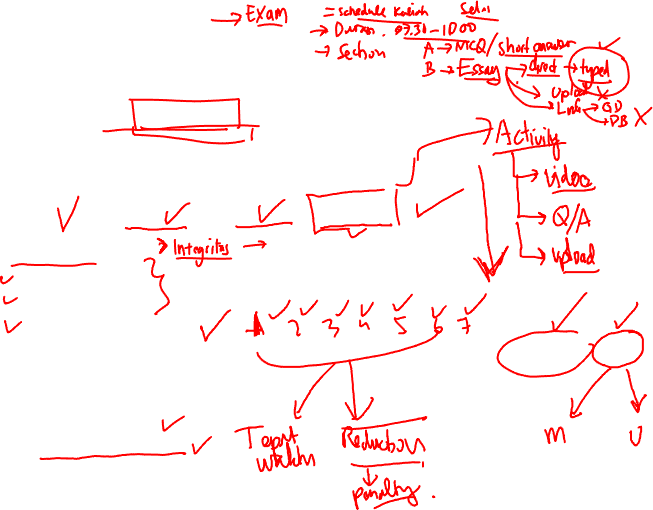 → Exam = schedule Kuliah
→ Duras. 07.30 - 1000
→ Section A → MCQ / short answer
B → Essay → direct → typed
→ upload X
→ Link → GD
→ DB X
→ Activity
→ video
→ Q/A
→ upload
> Integritas →
2 3 4 5 6 7
Reduction
↓
penalty.
m U